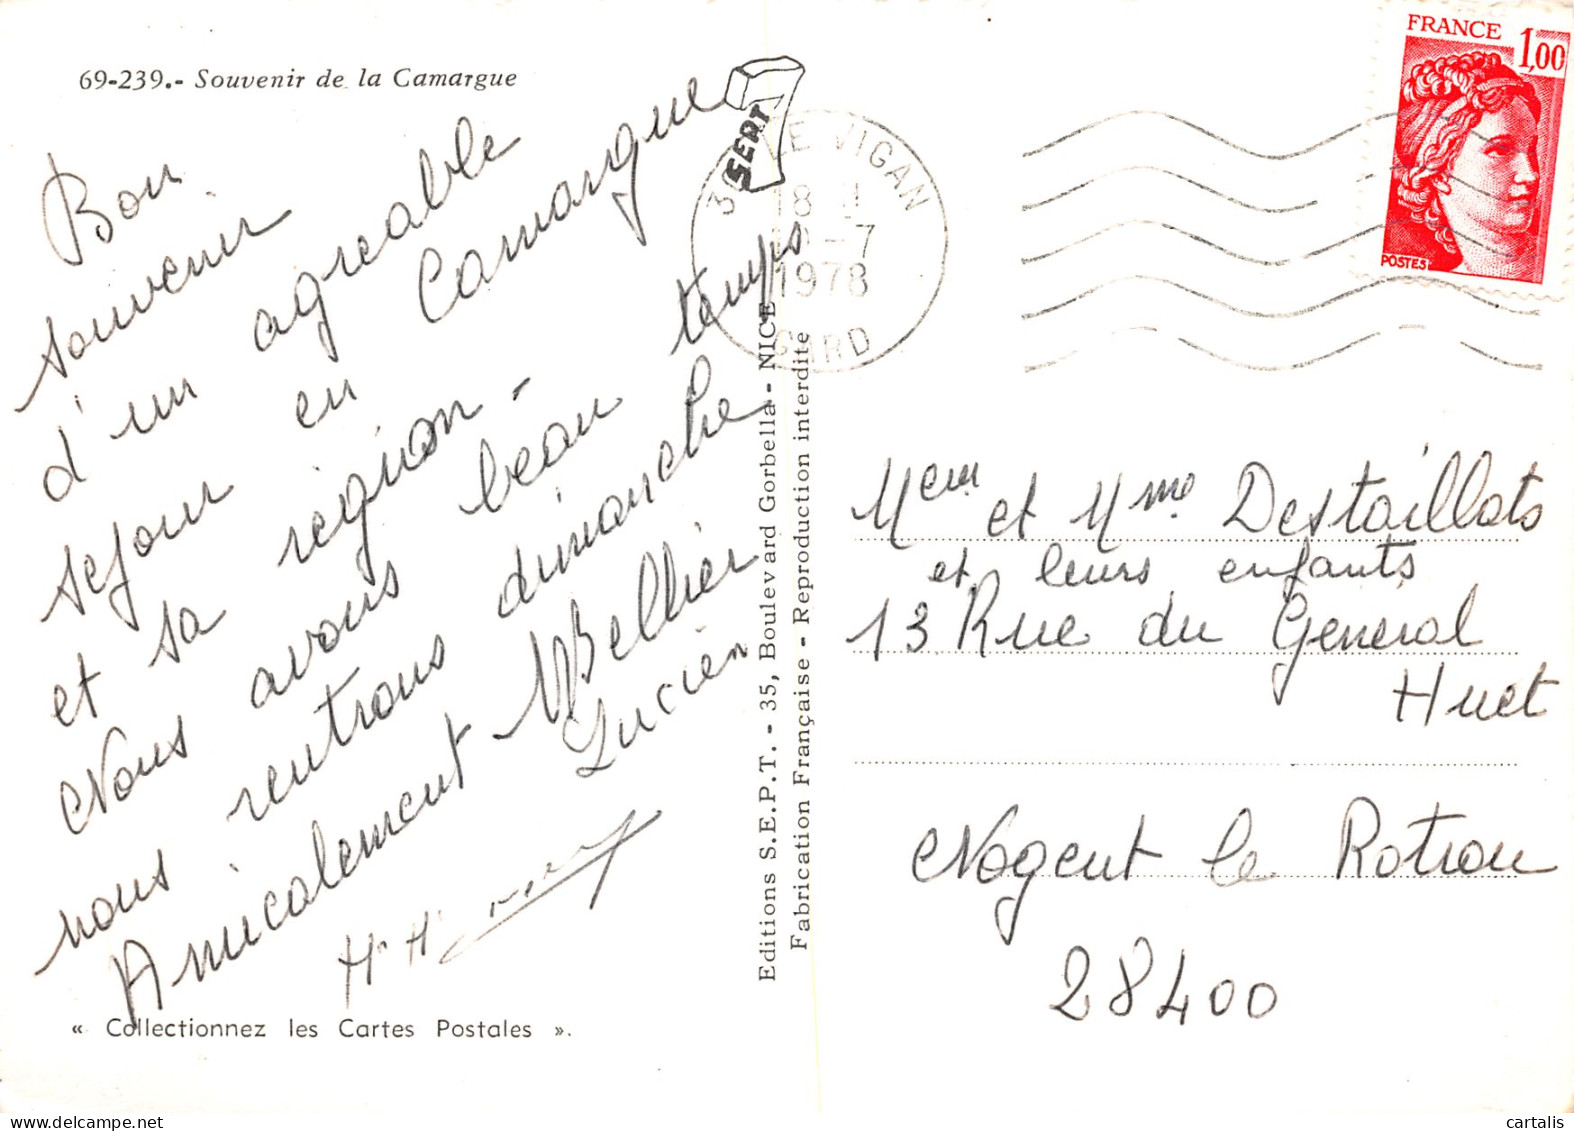 69-239.- Souvenir de la Camargue
Bon
souvenir
d'un agreable
sejour en Camargue
et sa region-
Nous avons beau temps
nous rentrons dimanche
Amicalement Bellier
Lucien
SEPT
LE VIGAN
18 H
-7
1978
GARD
FRANCE 1,00
POSTES
Editions S.E.P.T. - 35, Boulevard Gorbella - NICE
Fabrication Française - Reproduction interdite
et Mme Destaillats
et leurs enfants
13 Rue du General
Huet
Nogent le Rotrou
28400
« Collectionnez les Cartes Postales ».
cartalis